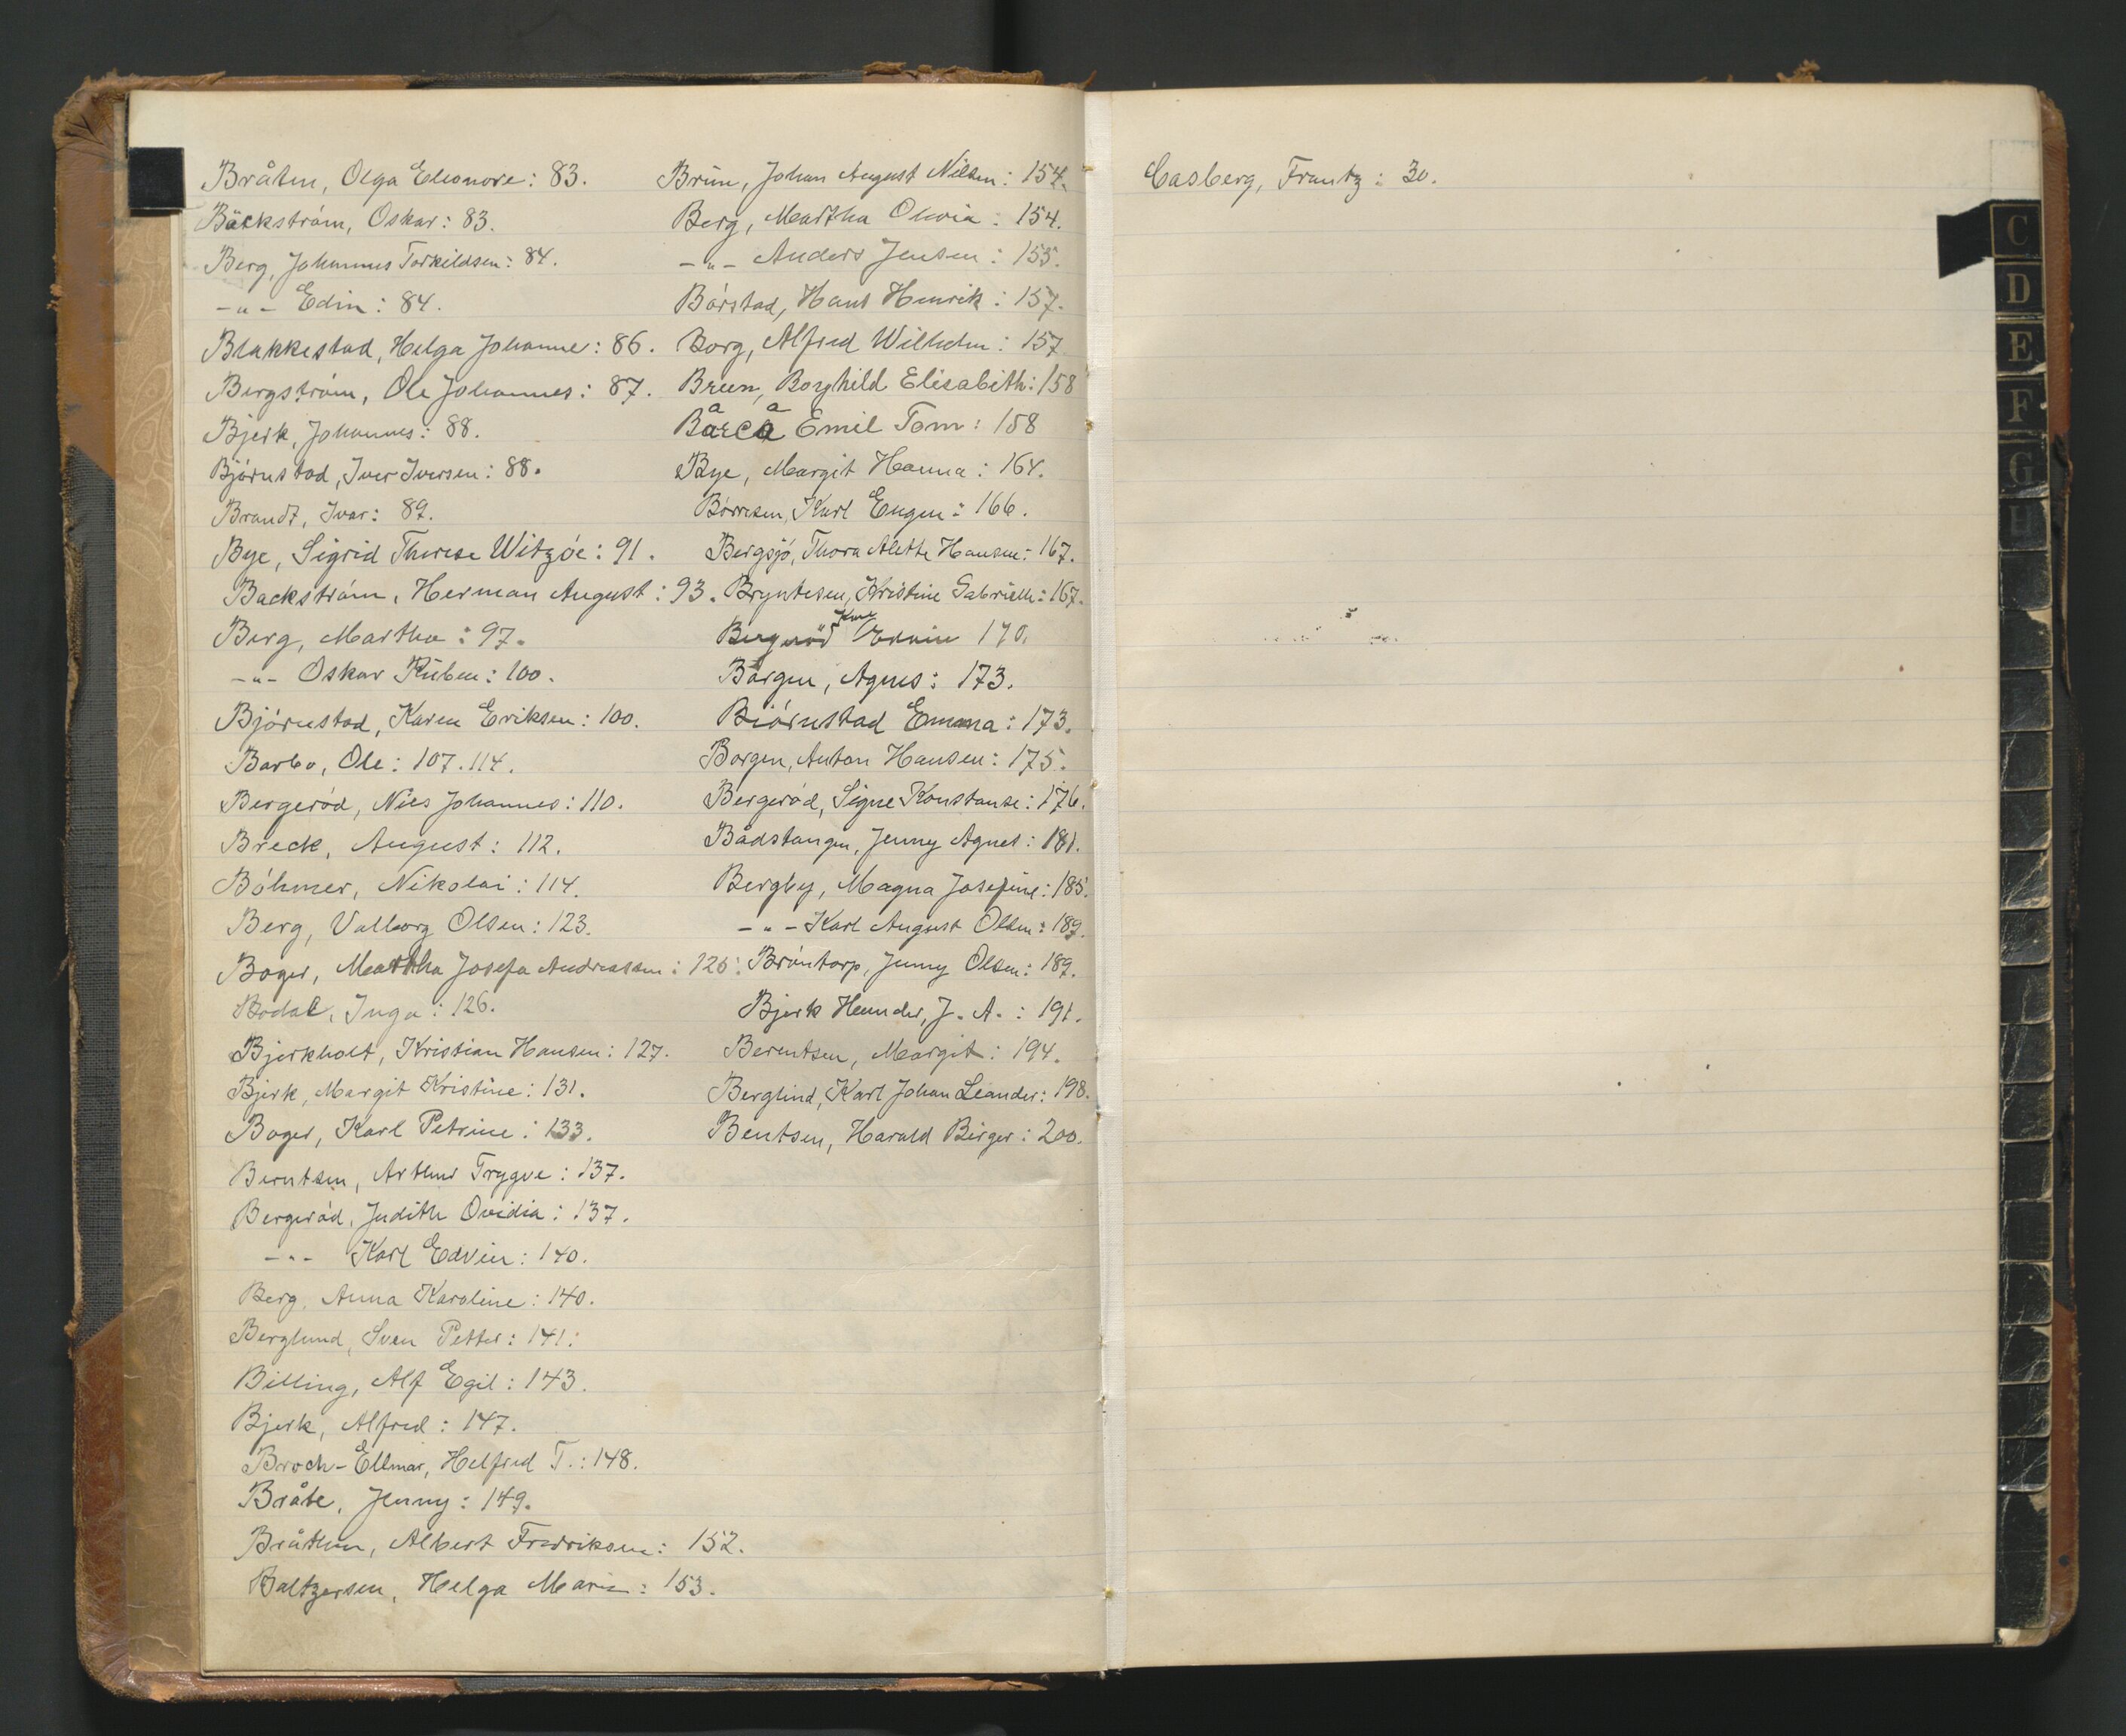 Bråten, Olga Eleonore: 83.
Bäckström, Oskar: 83.
Berg, Johannes Torkildsen: 84.
-"- Edin: 84.
Blakkestad, Helga Johanne: 86.
Bergström, Ole Johannes: 87.
Bjerk, Johannes: 88.
Björnstad, Iver Iversen: 88.
Brandt, Ivar: 89.
Bye, Sigrid Therese Witzöe: 91.
Backström, Herman August: 93.
Berg, Martha: 97.
-"- Oskar Rüben: 100.
Björnestad, Karen Eriksen: 100.
Barbo, Ole: 107.114.
Bergeröd, Nils Johannes: 110.
Breck, August: 112.
Böhmer, Nikolai: 114.
Berg, Valborg Olsen: 123.
Boger, Martha Josefa Andreassen: 126.
Bodal, Inga: 126.
Bjerkholt, Kristian Hansen: 127.
Bjerk, Margit Kristine: 131.
Boger, Karl Petrine: 133.
Berntsen, Arthur Trygve: 137.
Bergeröd, Judith Ovidia: 137.
-"- Karl Edvin: 140.
Berg, Anna Karoline: 140.
Berglund, Sven Petter: 141.
Billing, Alf Egil: 143.
Bjerk, Alfred: 147.
Broch-Ellmar, Helfred T.: 148.
Bråte, Jenny: 149.
Bråthen, Albert Fredriksen: 152.
Baltzersen, Helga Marie: 153.
Brün, Johan August Nilsen: 154.
Berg, Martha Olivia: 154.
-"- Anders Jensen: 155.
Börstad, Hans Henrik: 157.
Borg, Alfred Wilhelm: 157.
Breen, Borghild Elisabeth: 158
Barca Emil Tom: 158
Bye, Margit Hanna: 164.
Börresen, Karl Eugen: 166.
Bergsjö, Thora Alette Hansen: 167.
Bryntesen, Kristine Gabrielle: 167.
Bergeröd Edvin 170.
Börgen, Agnes: 173.
Björnstad Emma: 173.
Borgen, Anton Hansen: 175.
Bergeröd, Signe Konstanse: 176.
Bådstangen, Jenny Agnes: 181.
Bergby, Magna Josefine: 185.
-"- Karl August Olsen: 189.
Bröntorp, Jenny Olsen: 189.
Bjerk Hemder, J. A.: 191.
Berentsen, Margit: 194.
Berglind, Karl Johan Leander: 198.
Bentsen, Harald Birger: 200.
Casberg, Frantz: 30.
C
D
E
F
G
H